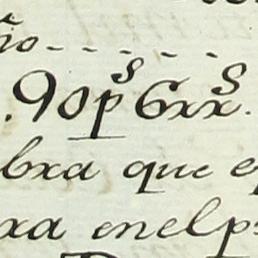 no - - - - - -
.90 pˢ 6xxˢ.
bxa que e
xa enel p